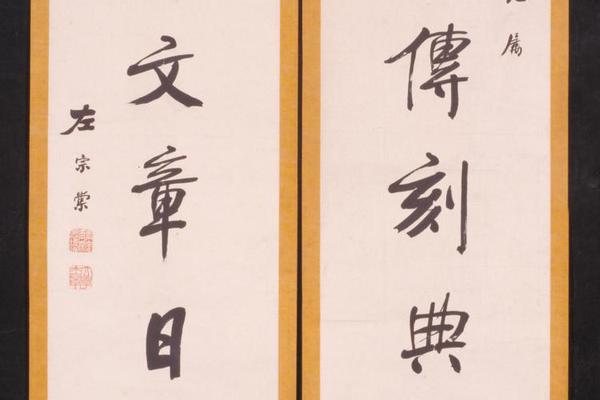 属
傳刻典
文章日
左宗棠